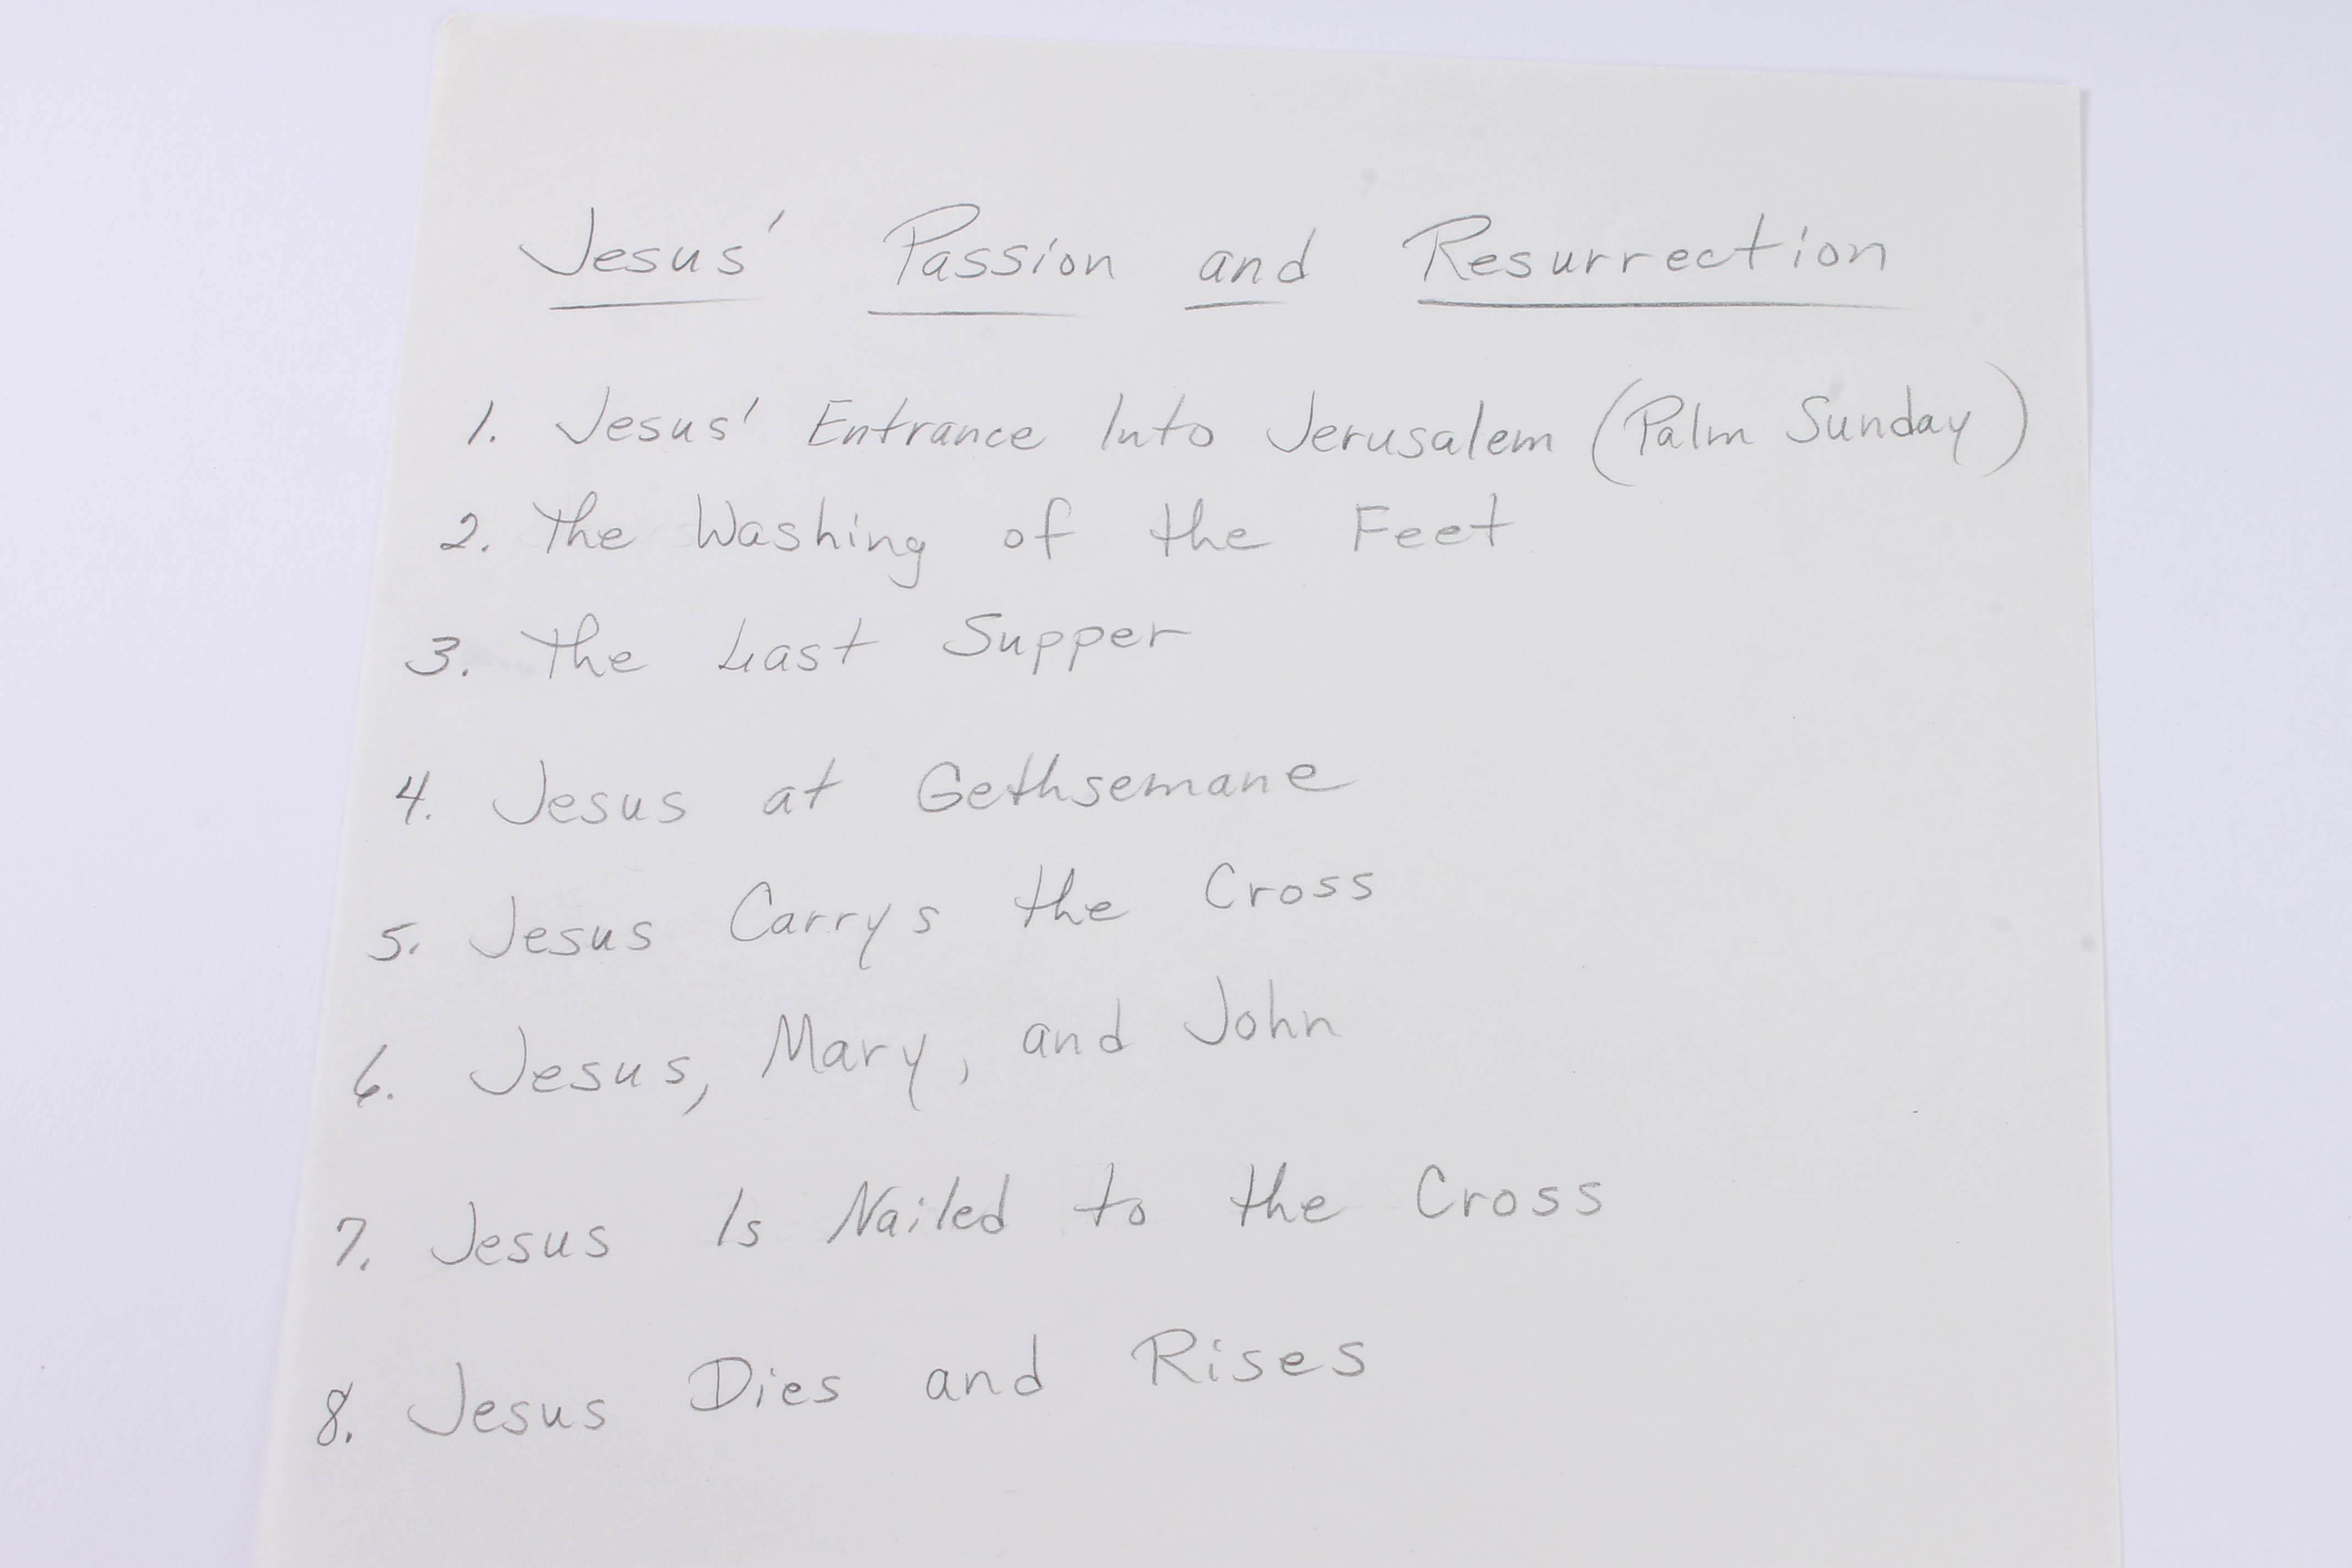 Jesus' Passion and Resurrection
1. Jesus' Entrance Into Jerusalem (Palm Sunday)
2. The Washing of the Feet
3. The Last Supper
4. Jesus at Gethsemane
5. Jesus Carrys the Cross
6. Jesus, Mary, and John
7. Jesus Is Nailed to the Cross
8. Jesus Dies and Rises